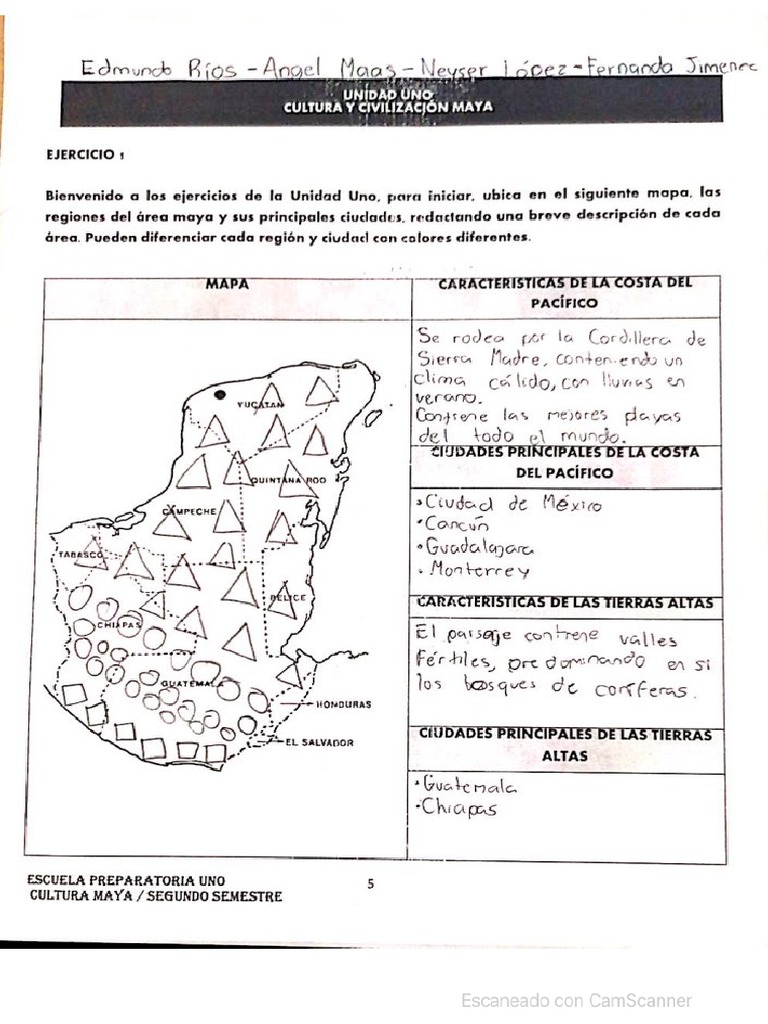 Edmundo Ríos - Angel Maas - Neyser López - Fernando Jimenez
UNIDAD UNO
CULTURA Y CIVILIZACIÓN MAYA
EJERCICIO 1
Bienvenido a los ejercicios de la Unidad Uno, para iniciar, ubica en el siguiente mapa, las
regiones del área maya y sus principales ciudades, redactando una breve descripción de cada
área. Pueden diferenciar cada región y ciudad con colores diferentes.
MAPA
YUCATAN
QUINTANA ROO
CAMPECHE
TABASCO
BELICE
CHIAPAS
GUATEMALA
HONDURAS
EL SALVADOR
CARACTERISTICAS DE LA COSTA DEL
PACÍFICO
Se rodea por la Cordillera de
Sierra Madre, conteniendo un
clima cálido, con lluvias en
verano.
Contiene las mejores playas
del todo el mundo.
CIUDADES PRINCIPALES DE LA COSTA
DEL PACÍFICO
• Ciudad de México
• Cancún
• Guadalajara
• Monterrey
CARACTERISTICAS DE LAS TIERRAS ALTAS
El paisaje contiene valles
fértiles, predominando en si
los bosques de coríferas.
CIUDADES PRINCIPALES DE LAS TIERRAS
ALTAS
• Guatemala
• Chiapas
ESCUELA PREPARATORIA UNO
CULTURA MAYA / SEGUNDO SEMESTRE
5
Escaneado con CamScanner